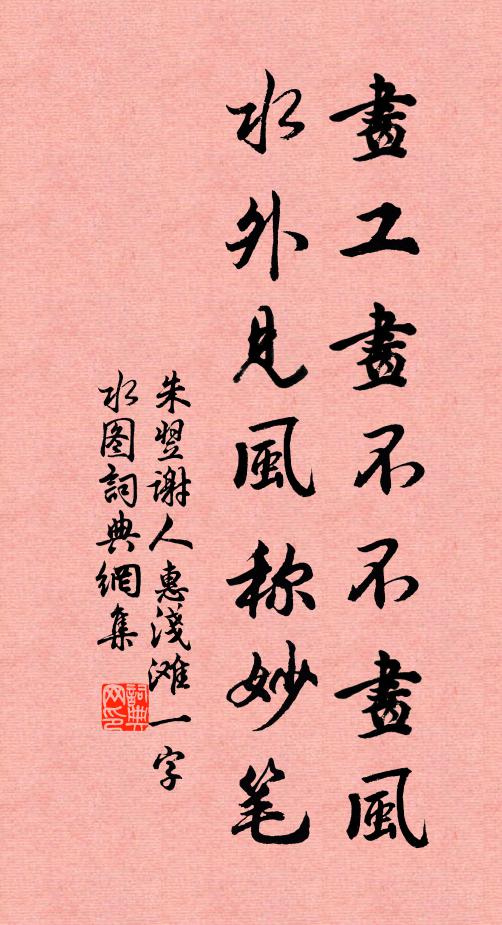 畫工畫不不畫風
水外見風称妙笔
朱翌謝人惠淺滩一字
水图詞典網集
詞典
网印